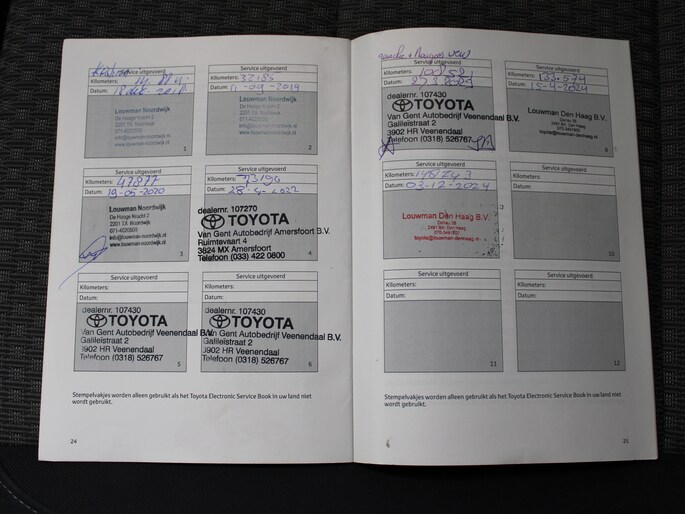 Service uitgevoerd
Kilometers:
Datum:
Louwman Noordwijk
De Hooge Krocht 2
2201 TX Noordwijk
071-4020503
info@louwman-noordwijk.nl
www.louwman-noordwijk.nl
1
Service uitgevoerd
Kilometers: 32185
Datum: 11-09-2019
2
Service uitgevoerd
Kilometers: 47877
Datum: 19-05-2020
Louwman Noordwijk
De Hooge Krocht 2
2201 TX Noordwijk
071-4020503
info@louwman-noordwijk.nl
www.louwman-noordwijk.nl
3
Service uitgevoerd
Kilometers: 73190
Datum: 28-4-2022
dealernr. 107270
TOYOTA
Van Gent Autobedrijf Amersfoort B.V.
Ruimtevaart 4
3824 MX Amersfoort
Telefoon (033) 422 0800
4
Service uitgevoerd
Kilometers:
Datum:
dealernr. 107430
TOYOTA
Van Gent Autobedrijf Veenendaal B.V.
Galileïstraat 2
3902 HR Veenendaal
Telefoon (0318) 526767
5
Service uitgevoerd
Kilometers:
Datum:
dealernr. 107430
TOYOTA
Van Gent Autobedrijf Veenendaal B.V.
Galileïstraat 2
3902 HR Veenendaal
Telefoon (0318) 526767
6
Stempelvakjes worden alleen gebruikt als het Toyota Electronic Service Book in uw land niet
wordt gebruikt.
24
Service uitgevoerd
Kilometers:
Datum:
dealernr. 107430
TOYOTA
Van Gent Autobedrijf Veenendaal B.V.
Galileïstraat 2
3902 HR Veenendaal
Telefoon (0318) 526767
Service uitgevoerd
Kilometers: 133.574
Datum: 15-4-2024
Louwman Den Haag B.V.
Donau 38
2491 BA Den Haag
070-3491802
toyota@louwman-denhaag.nl
Service uitgevoerd
Kilometers: 148743
Datum: 03-12-2024
Louwman Den Haag B.V.
Donau 38
2491 BA Den Haag
070-3491802
toyota@louwman-denhaag.nl
Service uitgevoerd
Kilometers:
Datum:
10
Service uitgevoerd
Kilometers:
Datum:
11
Service uitgevoerd
Kilometers:
Datum:
12
Stempelvakjes worden alleen gebruikt als het Toyota Electronic Service Book in uw land niet
wordt gebruikt.
25